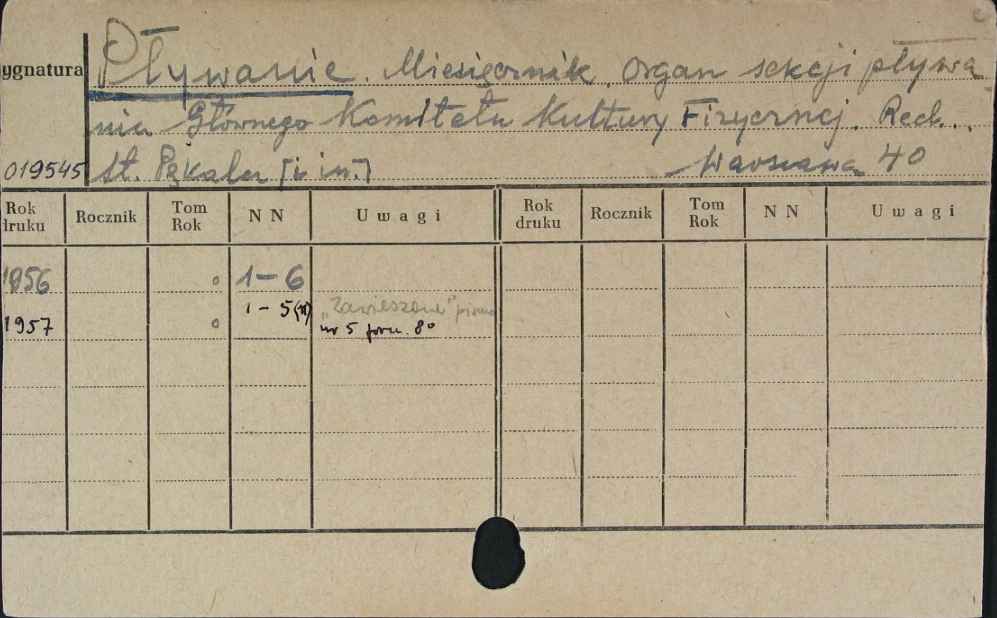 ygnatura Pływanie. Miesięcznik. Organ sekcji pływa
nia Głównego Komitetu Kultury Fizycznej. Red...
019545 St. Pękala [i in.] Warszawa 4°
Rok druku Rocznik Tom Rok NN Uwagi Rok druku Rocznik Tom Rok NN Uwagi
1956 1-6
1957 1-5 "Zawieszone" pismo
nr 5 form. 8°